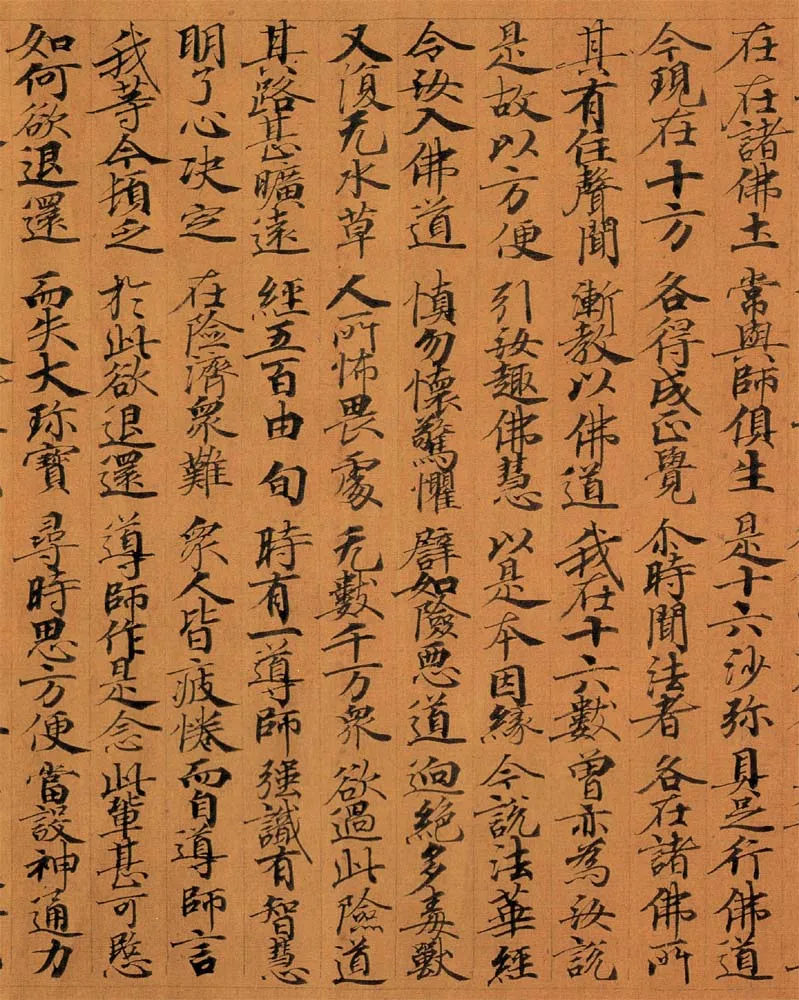 在在諸佛土 常與師俱生 是十六沙弥 具足行佛道
今現在十方 各得成正覺 尒時聞法者 各在諸佛所
其有住聲聞 漸教以佛道 我在十六數 曾亦為汝說
是故以方便 引汝趣佛慧 以是本因緣 今說法華經
令汝入佛道 慎勿懷驚懼 譬如險惡道 逈絕多毒獸
又復无水草 人所怖畏處 无數千万衆 欲過此險道
其路甚曠遠 經五百由旬 時有一導師 強識有智慧
明了心决定 在險濟衆難 衆人皆疲惓 而白導師言
我等今頓乏 於此欲退還 導師作是念 此輩甚可愍
如何欲退還 而失大珎寶 尋時思方便 當設神通力